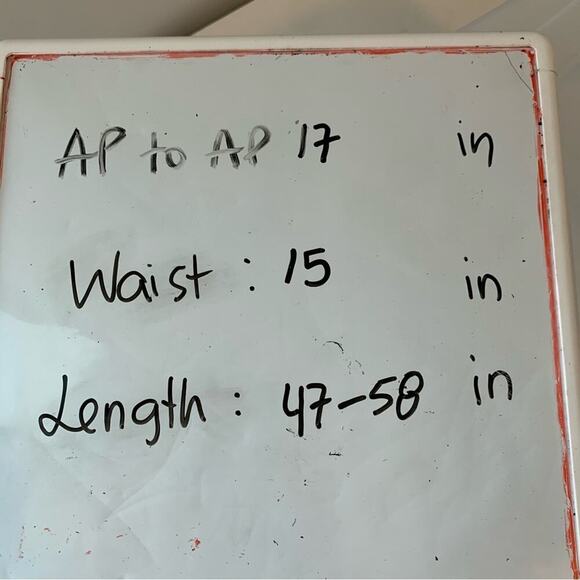 AP to AP 17 in
Waist : 15 in
Length : 47-58 in